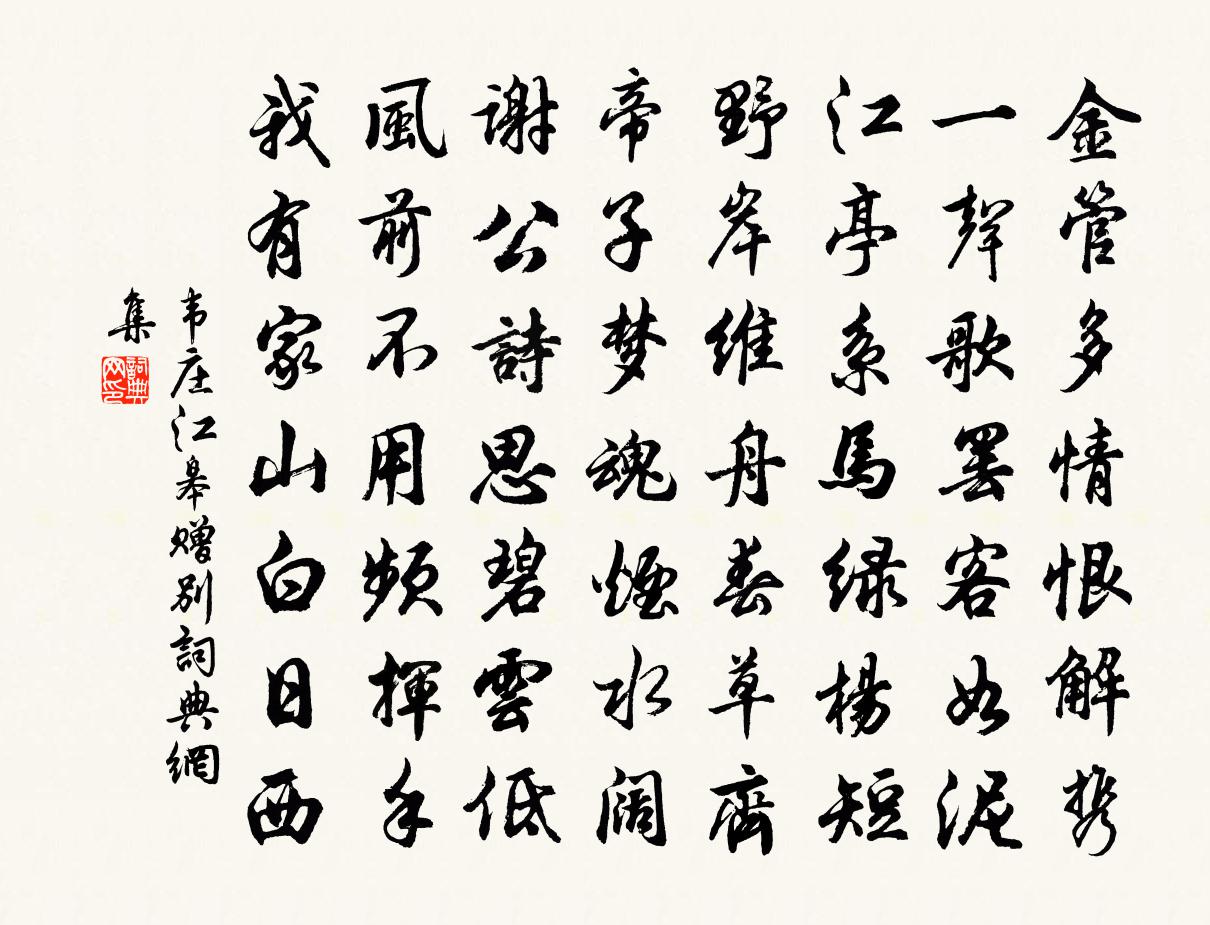 金管多情恨解携
一聲歌罢客如泥
江亭系馬绿楊短
野岸维舟春草齊
帝子梦魂煙水阔
谢公詩思碧雲低
風前不用频揮手
我有家山白日西
韦庄江皋赠别詞典網
集
詞典网印